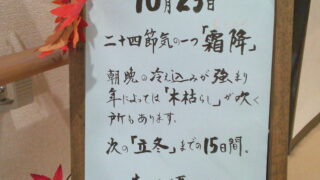 10月23日
二十四節気の一つ「霜降」
朝晩の冷え込みが強まり
年によっては「木枯らし」が吹く
所もあります。
次の「立冬」までの15日間。